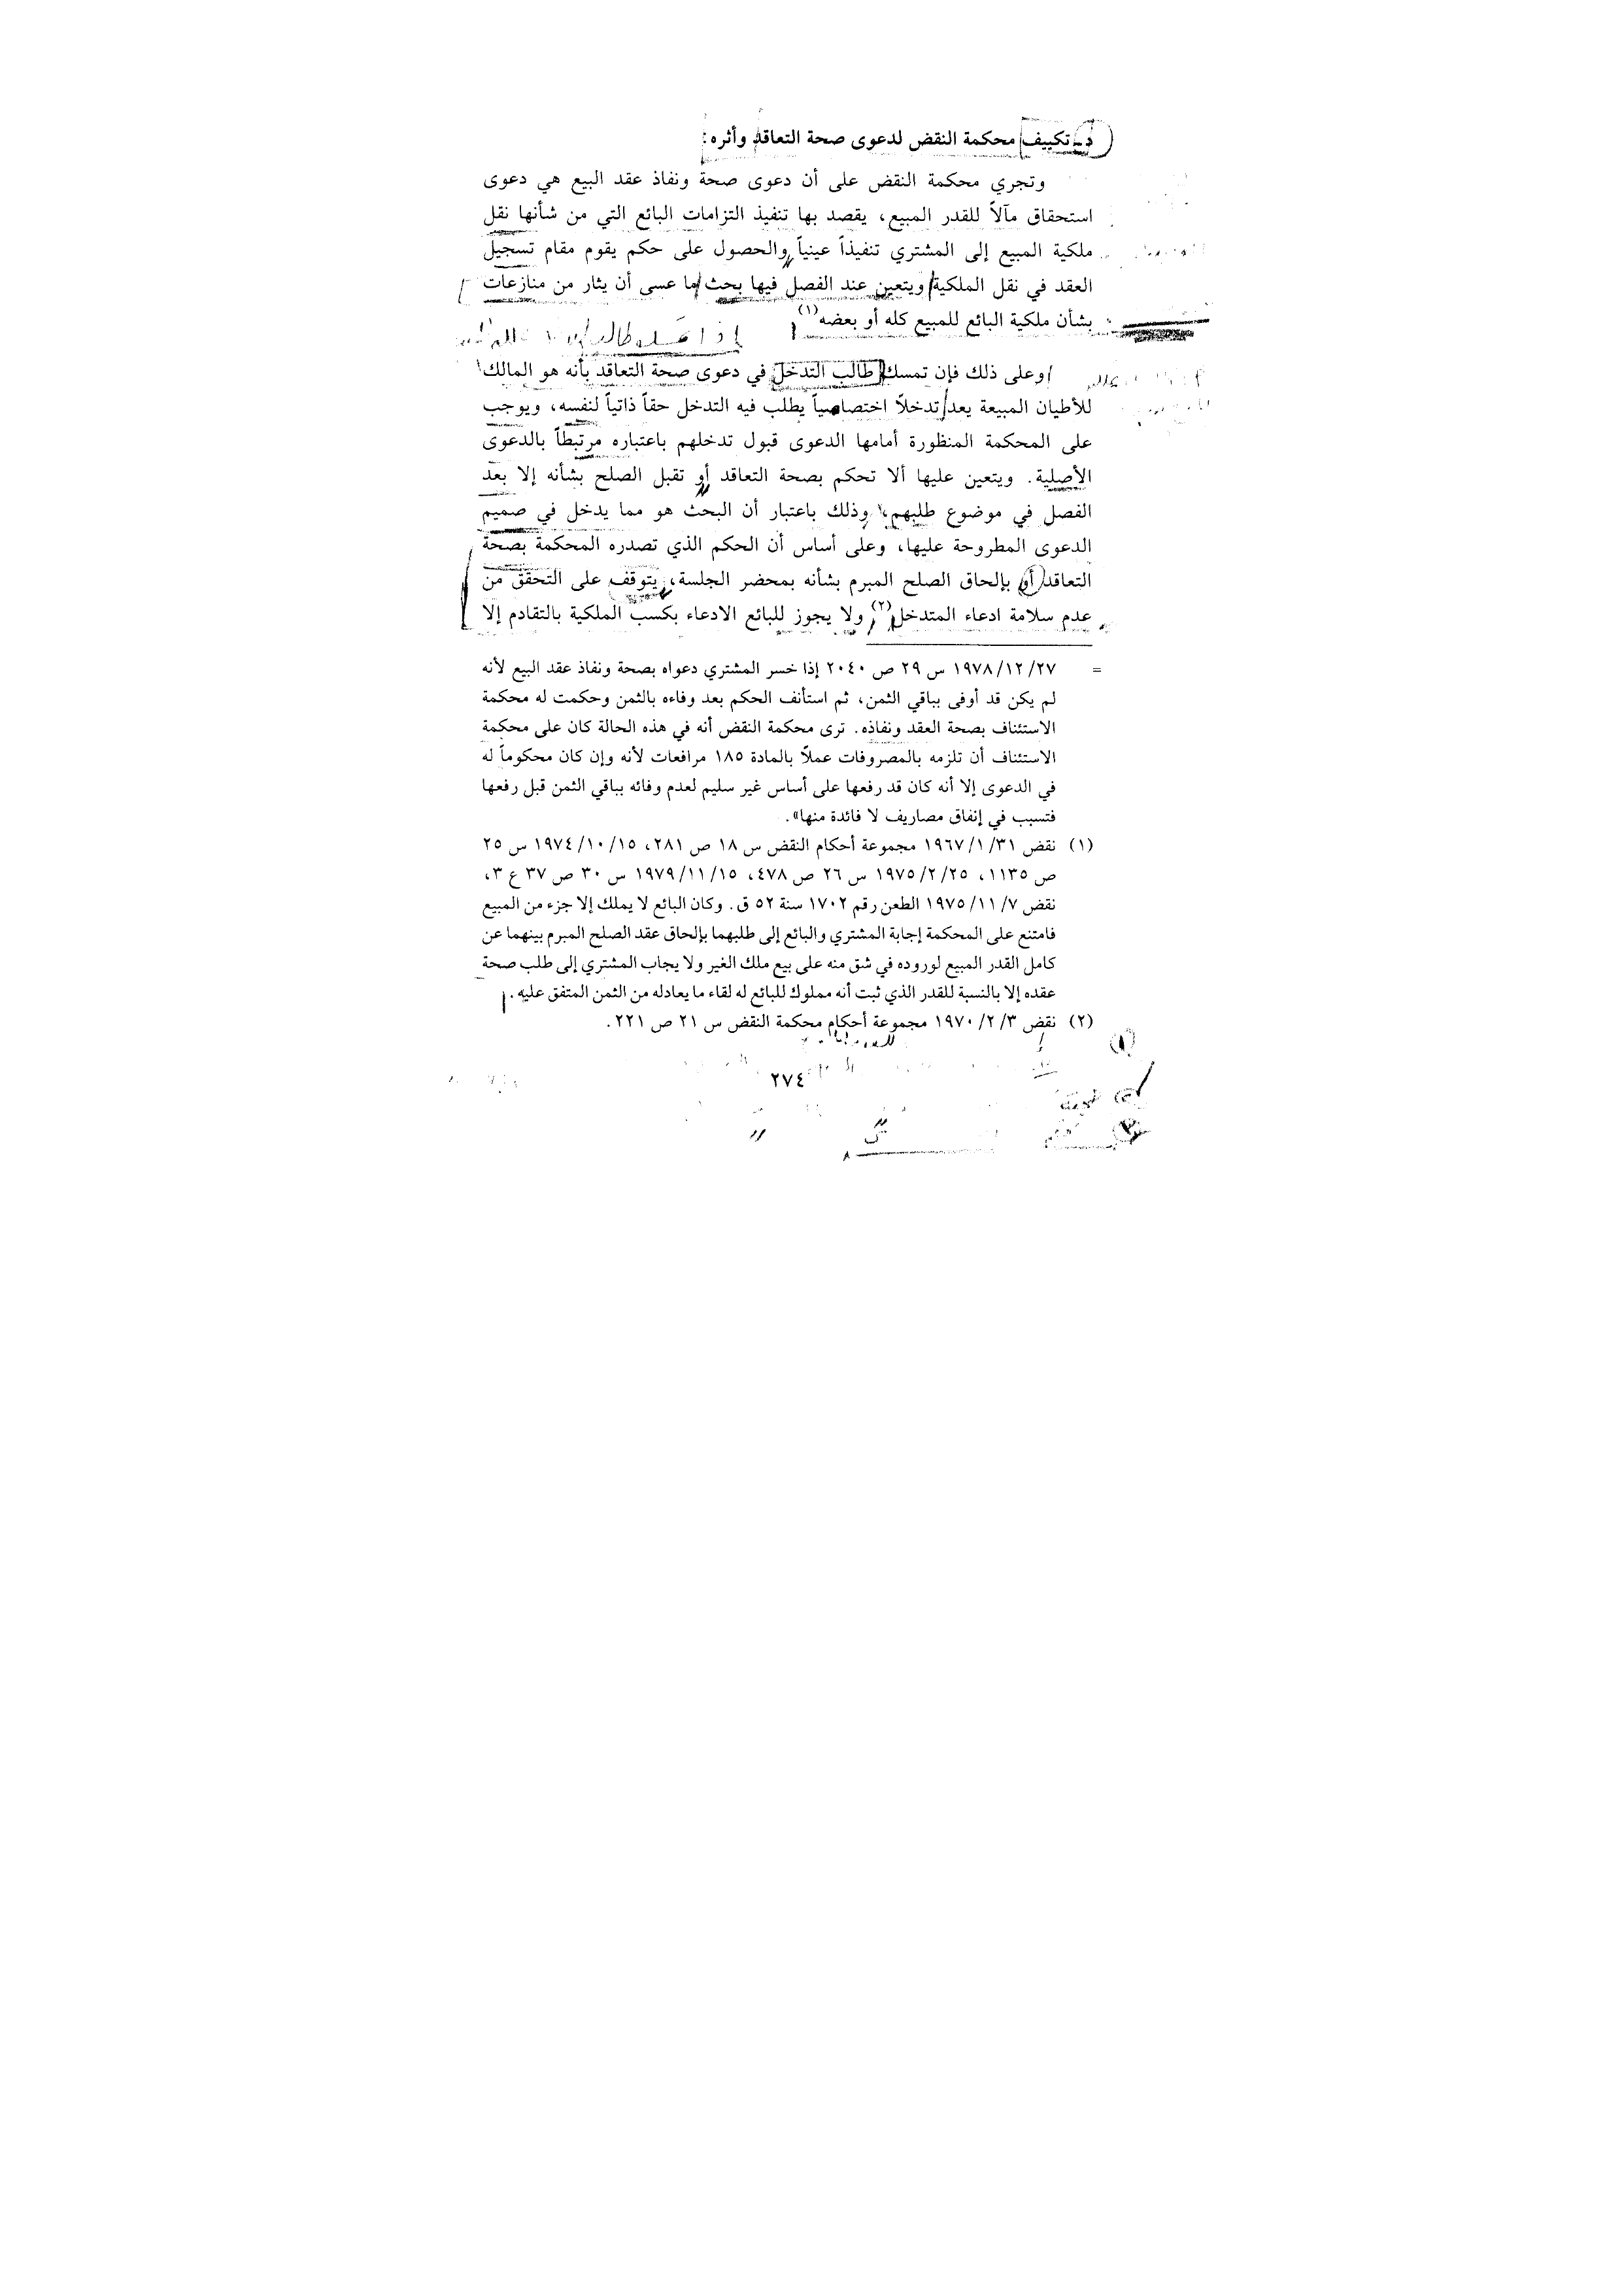 د ـ تكييف محكمة النقض لدعوى صحة التعاقد وأثره:
وتجري محكمة النقض على أن دعوى صحة ونفاذ عقد البيع هي دعوى
استحقاق مآلاً للقدر المبيع، يقصد بها تنفيذ التزامات البائع التي من شأنها نقل
ملكية المبيع إلى المشتري تنفيذاً عينياً والحصول على حكم يقوم مقام تسجيل
العقد في نقل الملكية ويتعين عند الفصل فيها بحث ما عسى أن يثار من منازعات
بشأن ملكية البائع للمبيع كله أو بعضه(١)
وعلى ذلك فإن تمسك طالب التدخل في دعوى صحة التعاقد بأنه هو المالك
للأطيان المبيعة يعد تدخلاً اختصاصياً يطلب فيه التدخل حقاً ذاتياً لنفسه، ويوجب
على المحكمة المنظورة أمامها الدعوى قبول تدخلهم باعتباره مرتبطاً بالدعوى
الأصلية. ويتعين عليها ألا تحكم بصحة التعاقد أو تقبل الصلح بشأنه إلا بعد
الفصل في موضوع طلبهم، وذلك باعتبار أن البحث هو مما يدخل في صميم
الدعوى المطروحة عليها، وعلى أساس أن الحكم الذي تصدره المحكمة بصحة
التعاقد أو بإلحاق الصلح المبرم بشأنه بمحضر الجلسة، يتوقف على التحقق من
عدم سلامة ادعاء المتدخل(٢) ولا يجوز للبائع الادعاء بكسب الملكية بالتقادم إلا
= ١٩٧٨/١٢/٢٧ س ٢٩ ص ٢٠٤٠ إذا خسر المشتري دعواه بصحة ونفاذ عقد البيع لأنه
لم يكن قد أوفى بباقي الثمن، ثم استأنف الحكم بعد وفاءه بالثمن وحكمت له محكمة
الاستئناف بصحة العقد ونفاذه. ترى محكمة النقض أنه في هذه الحالة كان على محكمة
الاستئناف أن تلزمه بالمصروفات عملاً بالمادة ١٨٥ مرافعات لأنه وإن كان محكوماً له
في الدعوى إلا أنه كان قد رفعها على أساس غير سليم لعدم وفائه بباقي الثمن قبل رفعها
فتسبب في إنفاق مصاريف لا فائدة منها».
(١) نقض ١٩٦٧/١/٣١ مجموعة أحكام النقض س ١٨ ص ٢٨١، ١٩٧٤/١٠/١٥ س ٢٥
ص ١١٣٥، ١٩٧٥/٢/٢٥ س ٢٦ ص ٤٧٨، ١٩٧٩/١١/١٥ س ٣٠ ص ٣٧ ع ٣،
نقض ١٩٧٥/١١/٧ الطعن رقم ١٧٠٢ سنة ٥٢ ق. وكان البائع لا يملك إلا جزء من المبيع
فامتنع على المحكمة إجابة المشتري والبائع إلى طلبهما بإلحاق عقد الصلح المبرم بينهما عن
كامل القدر المبيع لوروده في شق منه على بيع ملك الغير ولا يجاب المشتري إلى طلب صحة
عقده إلا بالنسبة للقدر الذي ثبت أنه مملوك للبائع له لقاء ما يعادله من الثمن المتفق عليه.
(٢) نقض ١٩٧٠/٢/٣ مجموعة أحكام محكمة النقض س ٢١ ص ٢٢١.
٢٧٤